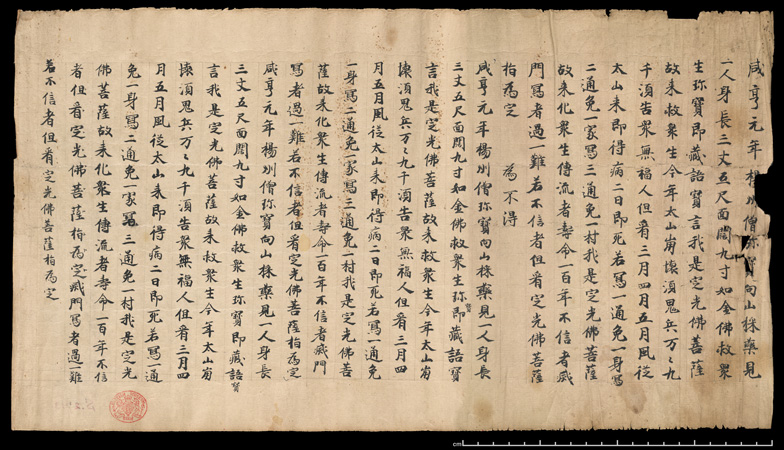 咸亨元年楊州僧珎寳向山採藥見
一人身長三丈五尺面闊九寸如金佛救衆
生珎寳即藏語寳言我是定光佛菩薩
故来救衆生今年太山崩壊湏鬼兵万〻九
千湏告衆無福人但看三月四月五月風從
太山来即得病二日即死若寫一通免一身寫
二通免一家寫三通免一村我是定光佛菩薩
故来化衆生傳流者壽命一百年不信者滅
門寫者過一難若不信者但看定光佛菩薩
指為定 為不得
咸亨元年楊州僧珎寳向山採藥見一人身長
三丈五尺面闊九寸如金佛救衆生珎寳即藏語寳
言我是定光佛菩薩故来救衆生今年太山崩
壊湏鬼兵万〻九千湏告衆無福人但看三月四
月五月風從太山来即得病二日即死若寫一通免
一身寫二通免一家寫三通免一村我是定光佛菩
薩故来化衆生傳流者壽命一百年不信者滅門
寫者過一難若不信者但看定光佛菩薩指為定
咸亨元年楊州僧珎寳向山採藥見一人身長
三丈五尺面闊九寸如金佛救衆生珎寳即藏語寳
言我是定光佛菩薩故来救衆生今年太山崩
壊湏鬼兵万〻九千湏告衆無福人但看三月四
月五月風從太山来即得病二日即死若寫一通
免一身寫二通免一家寫三通免一村我是定光
佛菩薩故来化衆生傳流者壽命一百年不信
者但看定光佛菩薩指為定滅門寫者過一難
若不信者但看定光佛菩薩指為定
cm